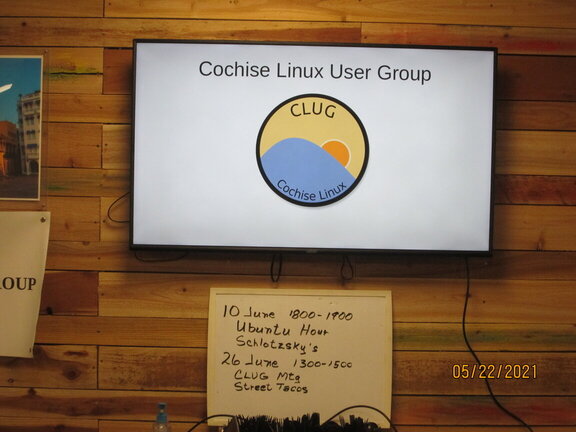 Cochise Linux User Group
CLUG
Cochise Linux
OUP
10 June 1800-1900
Ubuntu Hour
Schlotzsky's
26 June 1300-1500
CLUG Mtg
Street Tacos
05/22/2021